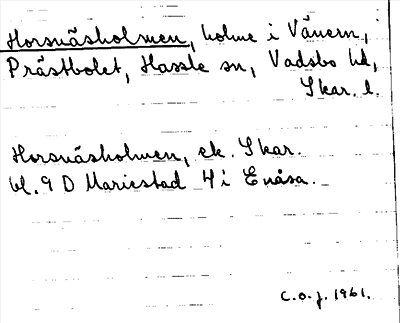 Horsnäsholmen, holme i Vänern,
Prästbolet, Hassle sn, Vadsbo hd,
Skar. l.
Horsnäsholmen, ek. Skar.
bl. 9 D Mariestad 4 i Enåsa.
C.O.J. 1961.